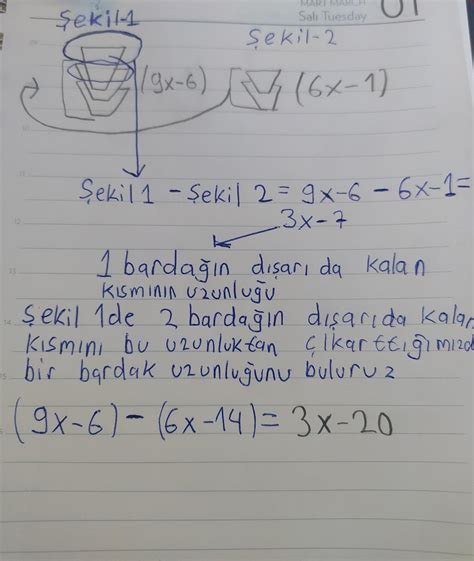 MART MARCH
Salı Tuesday 01
Şekil-1
Şekil-2
(9x-6)
(6x-1)
Şekil 1 - Şekil 2 = 9x-6 - 6x-1=
3x-7
1 bardağın dışarı da kalan
kısmının uzunluğu
Şekil 1de 2 bardağın dışarıda kalan
kısmını bu uzunluktan çıkarttığımızda
bir bardak uzunluğunu buluruz
(9x-6) - (6x-14)= 3x-20